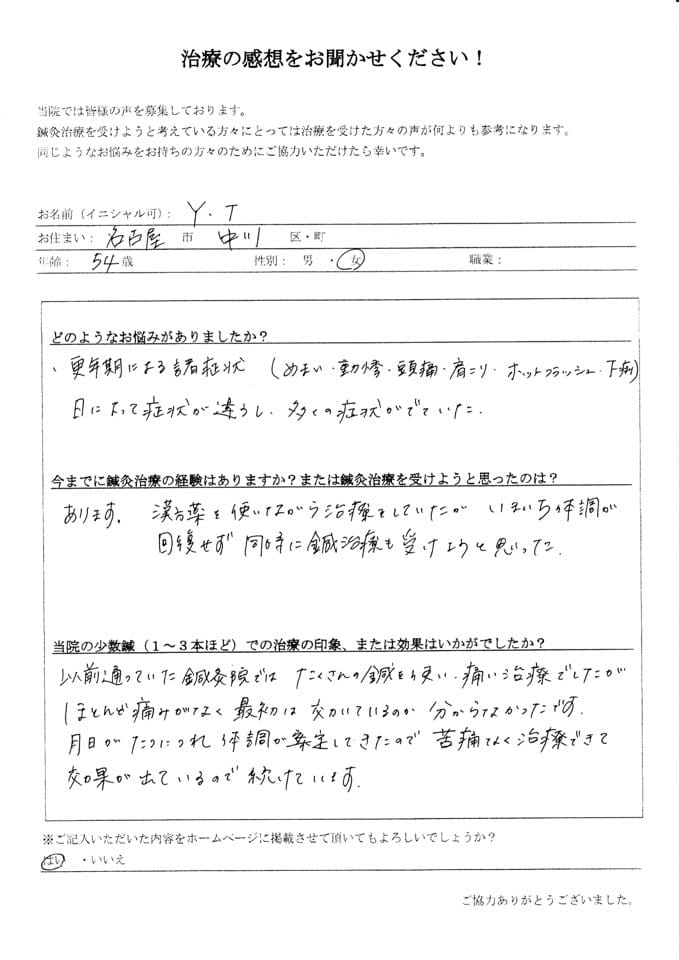 治療の感想をお聞かせください！
当院では皆様の声を募集しております。
鍼灸治療を受けようと考えている方々にとっては治療を受けた方々の声が何よりも参考になります。
同じようなお悩みをお持ちの方々のためにご協力いただけたら幸いです。
お名前（イニシャル可）： Y.T
お住まい： 名古屋 市 中川 区・町
年齢： 54 歳 性別： 男 ・ 女 職業：
どのようなお悩みがありましたか？
・更年期による諸症状 （めまい・動悸・頭痛・肩こり・ホットフラッシュ・下痢）
日によって症状が違うし、多くの症状がでていた。
今までに鍼灸治療の経験はありますか？または鍼灸治療を受けようと思ったのは？
あります。 漢方薬を使いながら治療をしていたが いまいち体調が
回復せず 同時に鍼治療も受けようと思った。
当院の少数鍼（１～３本ほど）での治療の印象、または効果はいかがでしたか？
以前通っていた鍼灸院では たくさんの鍼を使い、痛い治療でしたが
ほとんど痛みがなく 最初は効いているのか 分からなかったです。
月日がたつにつれ 体調が安定してきたので 苦痛なく治療できて
効果が出ているので続けています。
※ご記入いただいた内容をホームページに掲載させて頂いてもよろしいでしょうか？
はい ・いいえ
ご協力ありがとうございました。